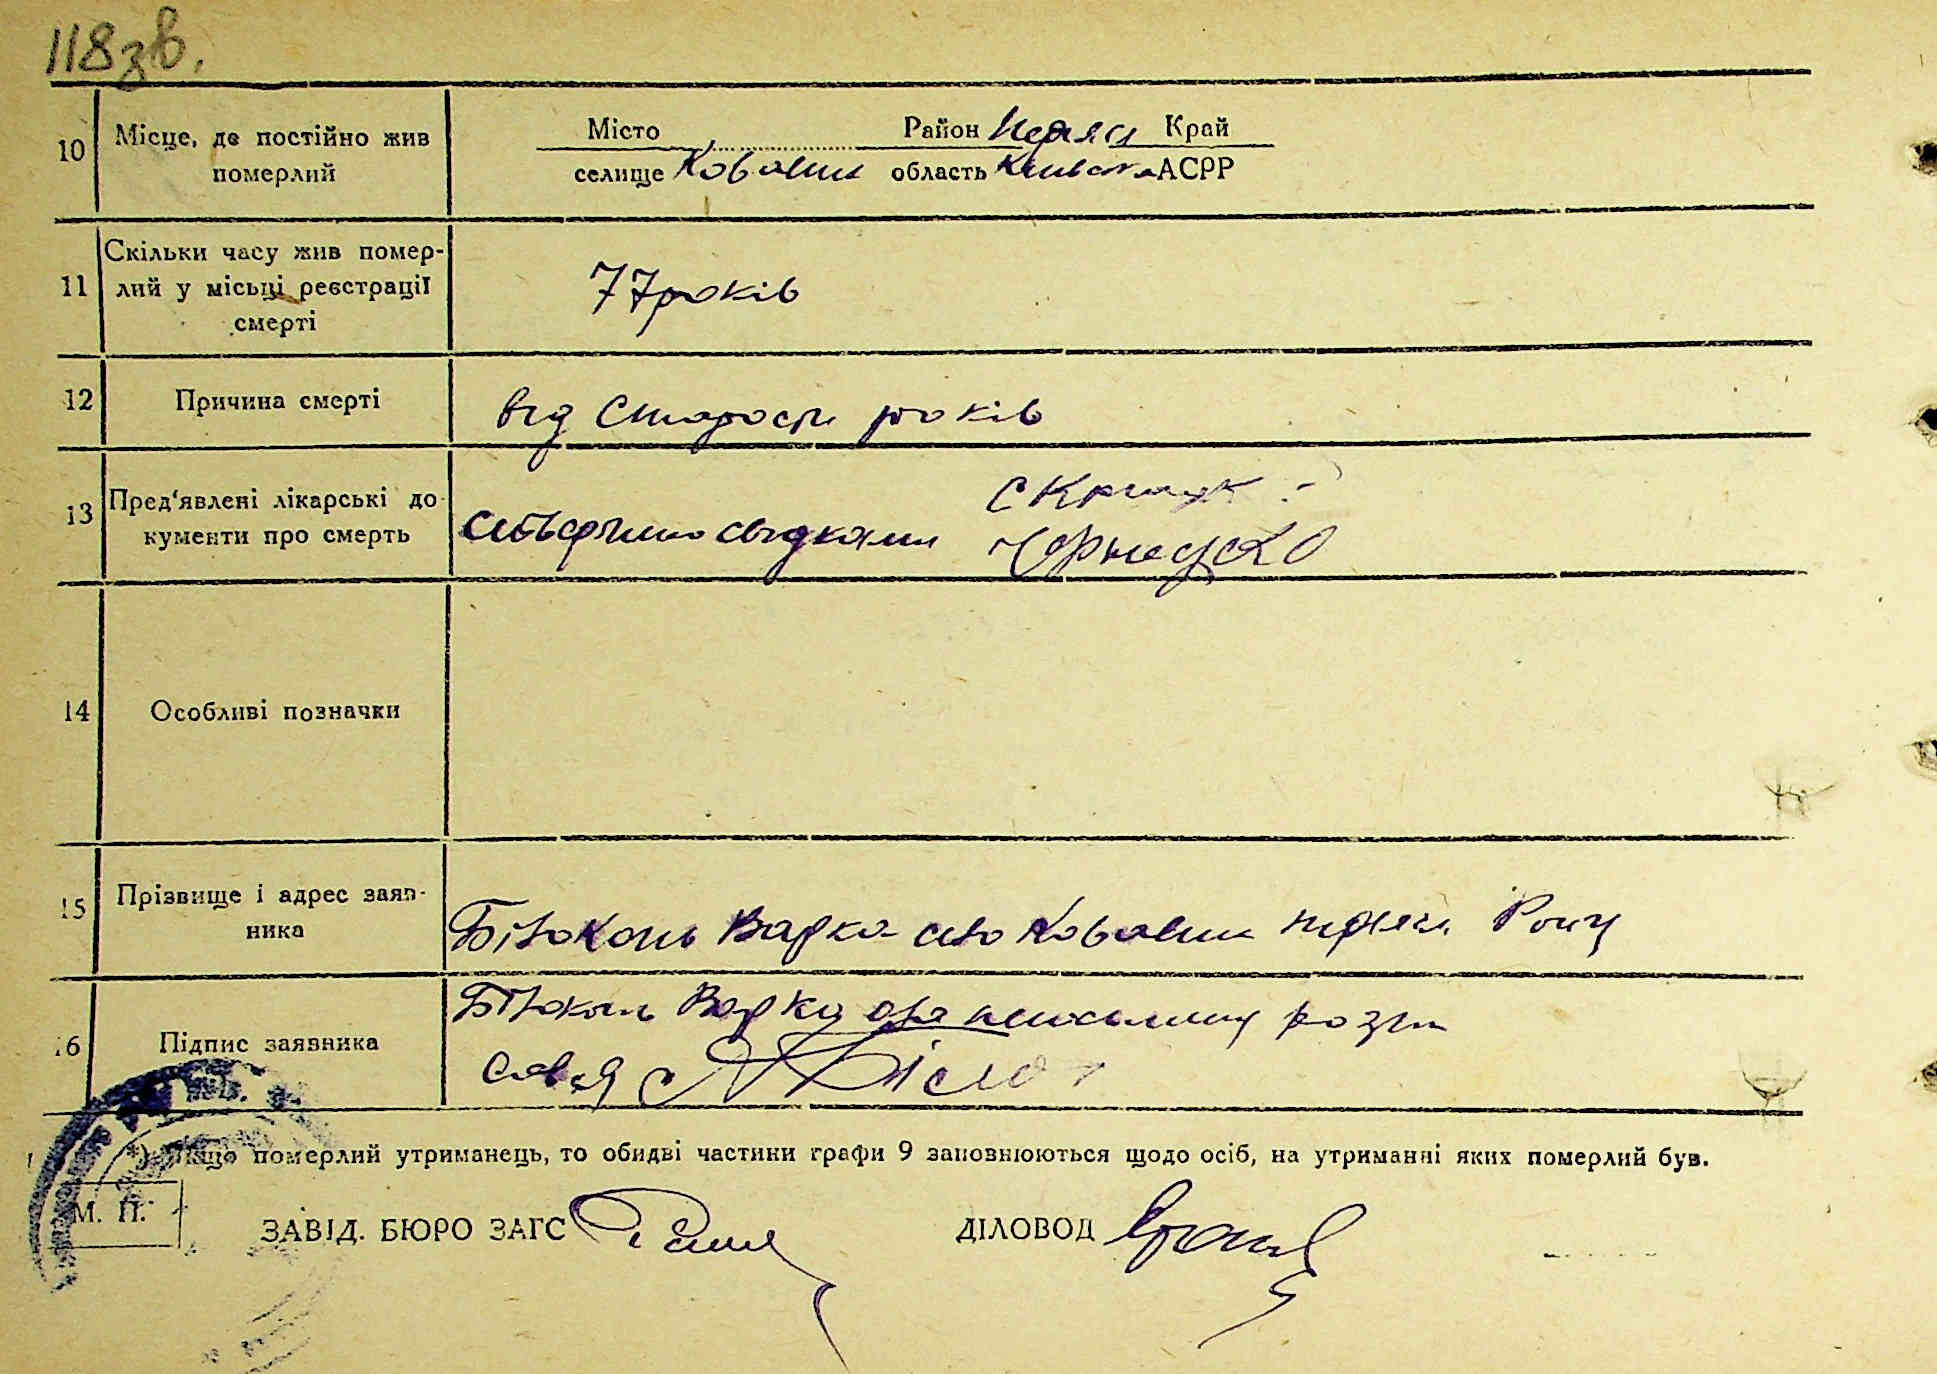 118зв.
10 Місце, де постійно жив Місто Район Переясл Край
померлий селище Ковалин область Київська АСРР
11 Скільки часу жив помер-
лий у місьці реєстрації 77 років
смерті
12 Причина смерті від старости років
13 Пред'явлені лікарські до
кументи про смерть свідками
14 Особливі позначки
15 Прізвище і адрес заяв-
ника Білоконь Варка село Ковалин Переясл. Району
16 Підпис заявника Білоконь Варка
*) Якщо померлий утриманець, то обидві частини графи 9 заповнюються щодо осіб, на утриманні яких померлий був.
М. П. ЗАВІД. БЮРО ЗАГС ДІЛОВОД